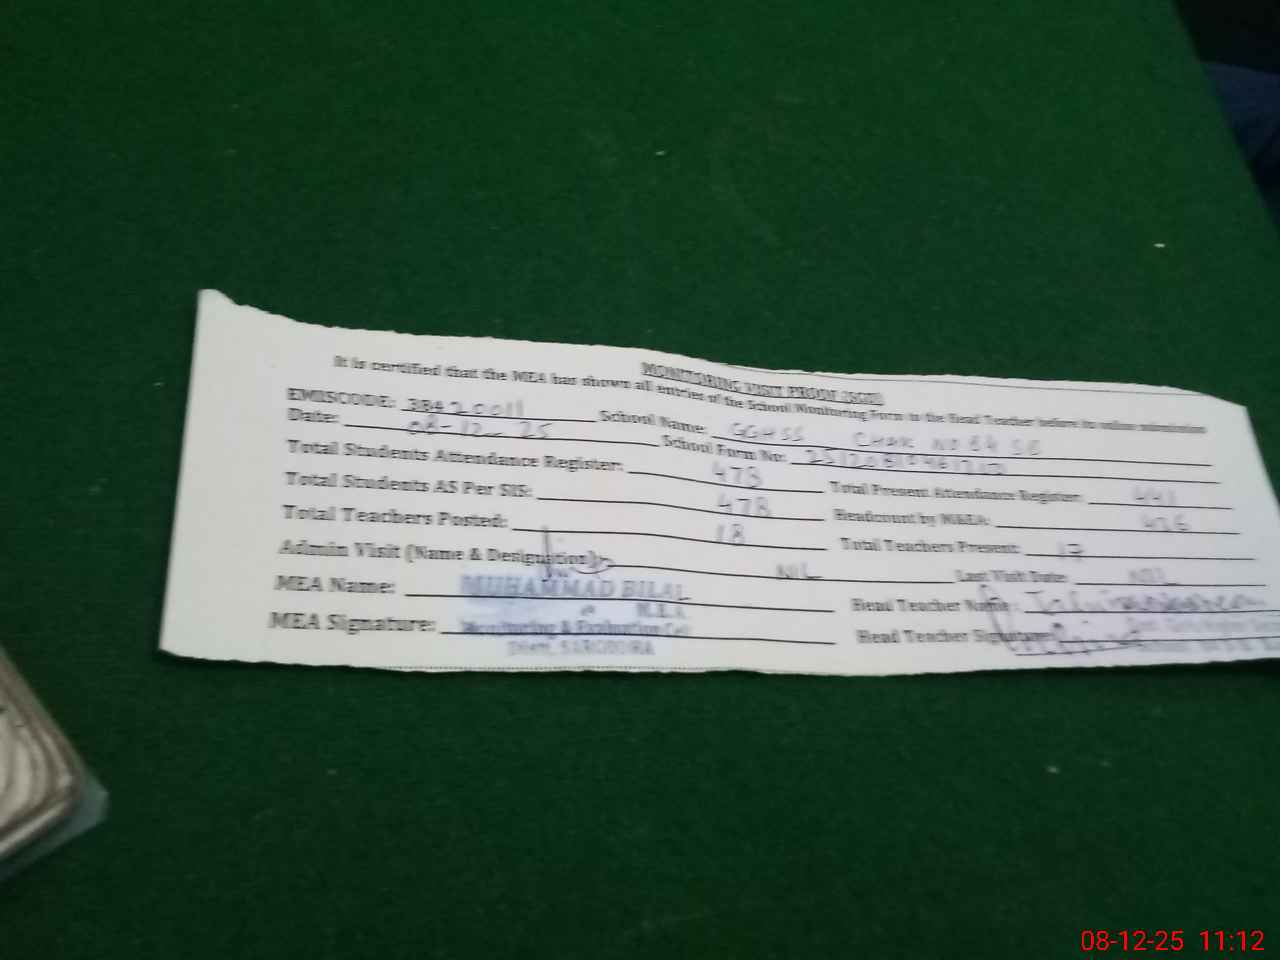 MONITORING VISIT PROOF
It is certified that the MEA has shown all entries of the School Monitoring Form to the Head Teacher before its online submission
EMISCODE: 38420011 School Name: GGHSS CHAK NO 84 SB
Date: 08-12-25 School Form No:
Total Students Attendance Register: 478 Total Present Attendance Register: 441
Total Students AS Per SIS: 478 Headcount by M&EA: 426
Total Teachers Posted: 18 Total Teachers Present: 17
Admin Visit (Name & Designation): NIL Last Visit Date: NIL
MEA Name: MUHAMMAD BILAL Head Teacher Name:
M.E.A
MEA Signature: Monitoring & Evaluation Cell Head Teacher Signature:
Distt. SARGODHA
08-12-25 11:12